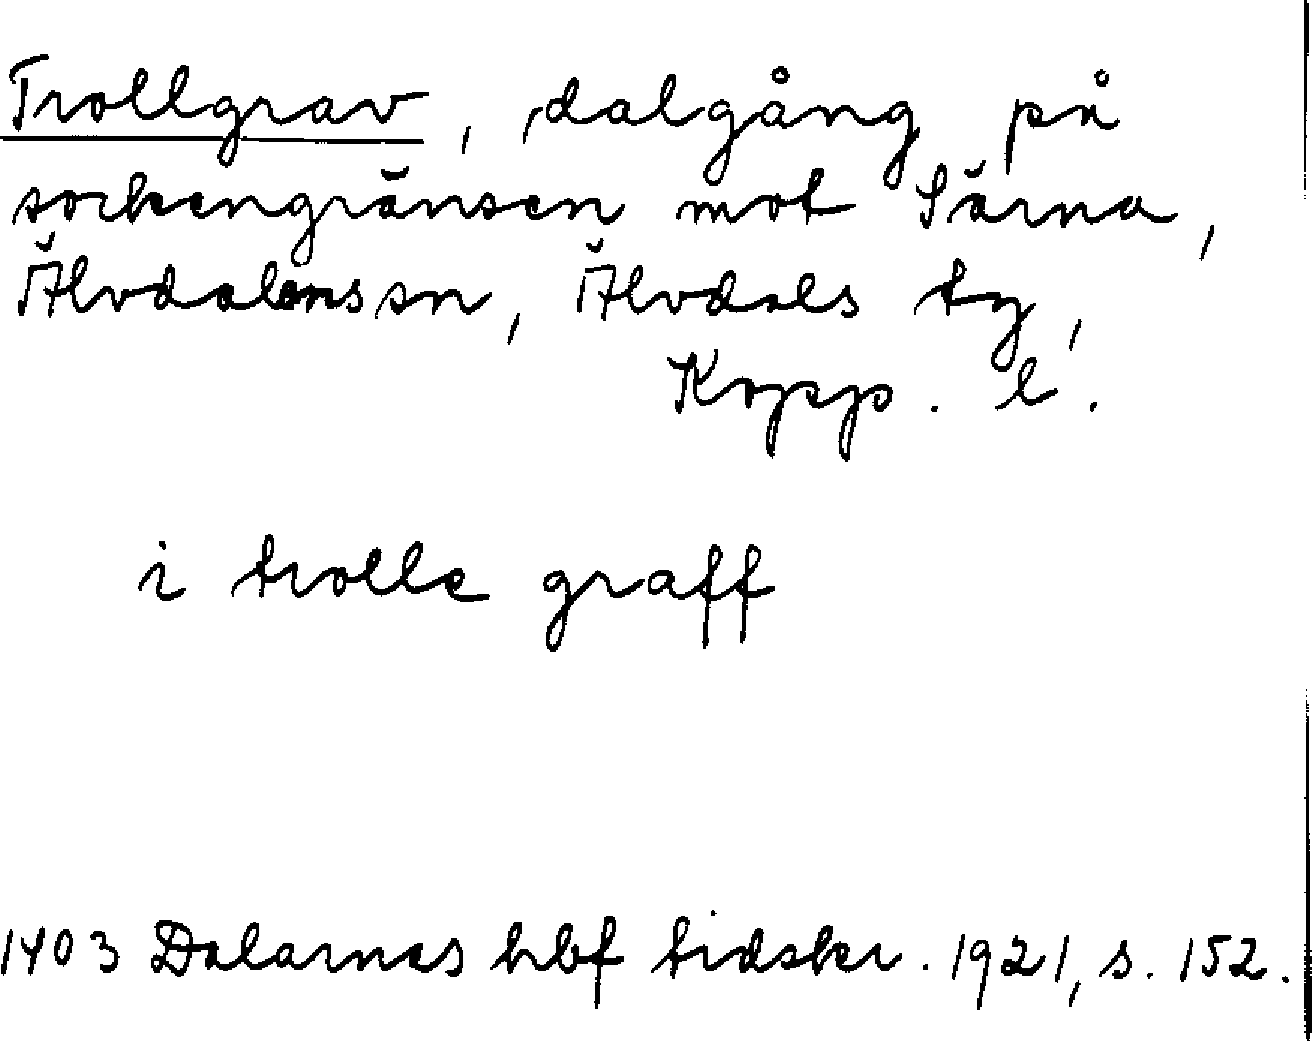 Trollgrav, dalgång på
sockengränsen mot Särna,
Älvdalens sn, Älvdals tg,
Kopp. l.
i trolle graff
1403 Dalarnas hbf tidskr. 1921, s. 152.